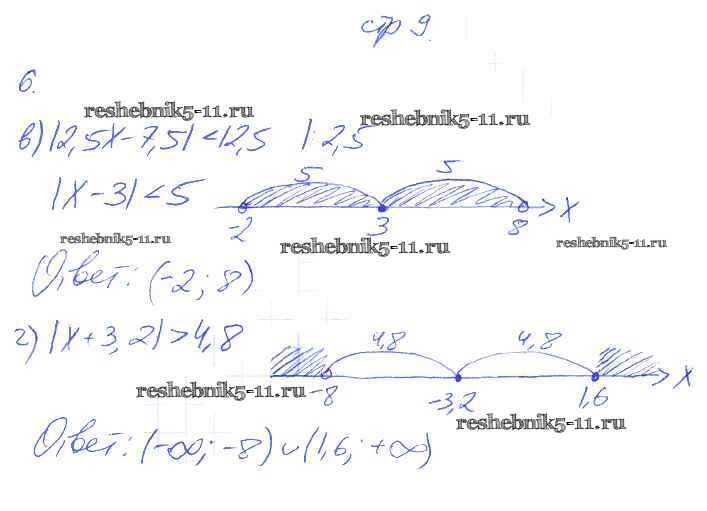 стр 9.
6.
reshebnik5-11.ru
reshebnik5-11.ru
в) |2,5x-7,5|<12,5 |:2,5
5 5
|x-3|<5
-2 3 8 x
reshebnik5-11.ru
reshebnik5-11.ru
reshebnik5-11.ru
Ответ: (-2; 8)
г) |x+3,2|>4,8
4,8 4,8
-8 -3,2 1,6 x
reshebnik5-11.ru
reshebnik5-11.ru
Ответ: (-∞; -8)∪(1,6; +∞)